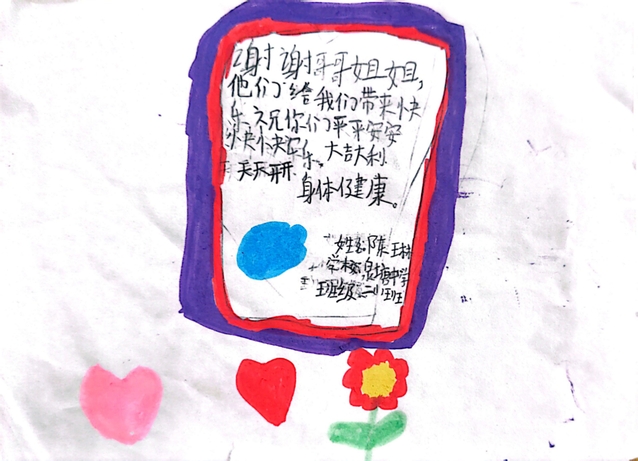 谢谢哥哥姐姐,
他们给我们带来快
乐祝你们平平安安
快快乐乐。大吉大利.
天天开开
身体健康。
姓名陈王林
学校泉塘中学
班级二班